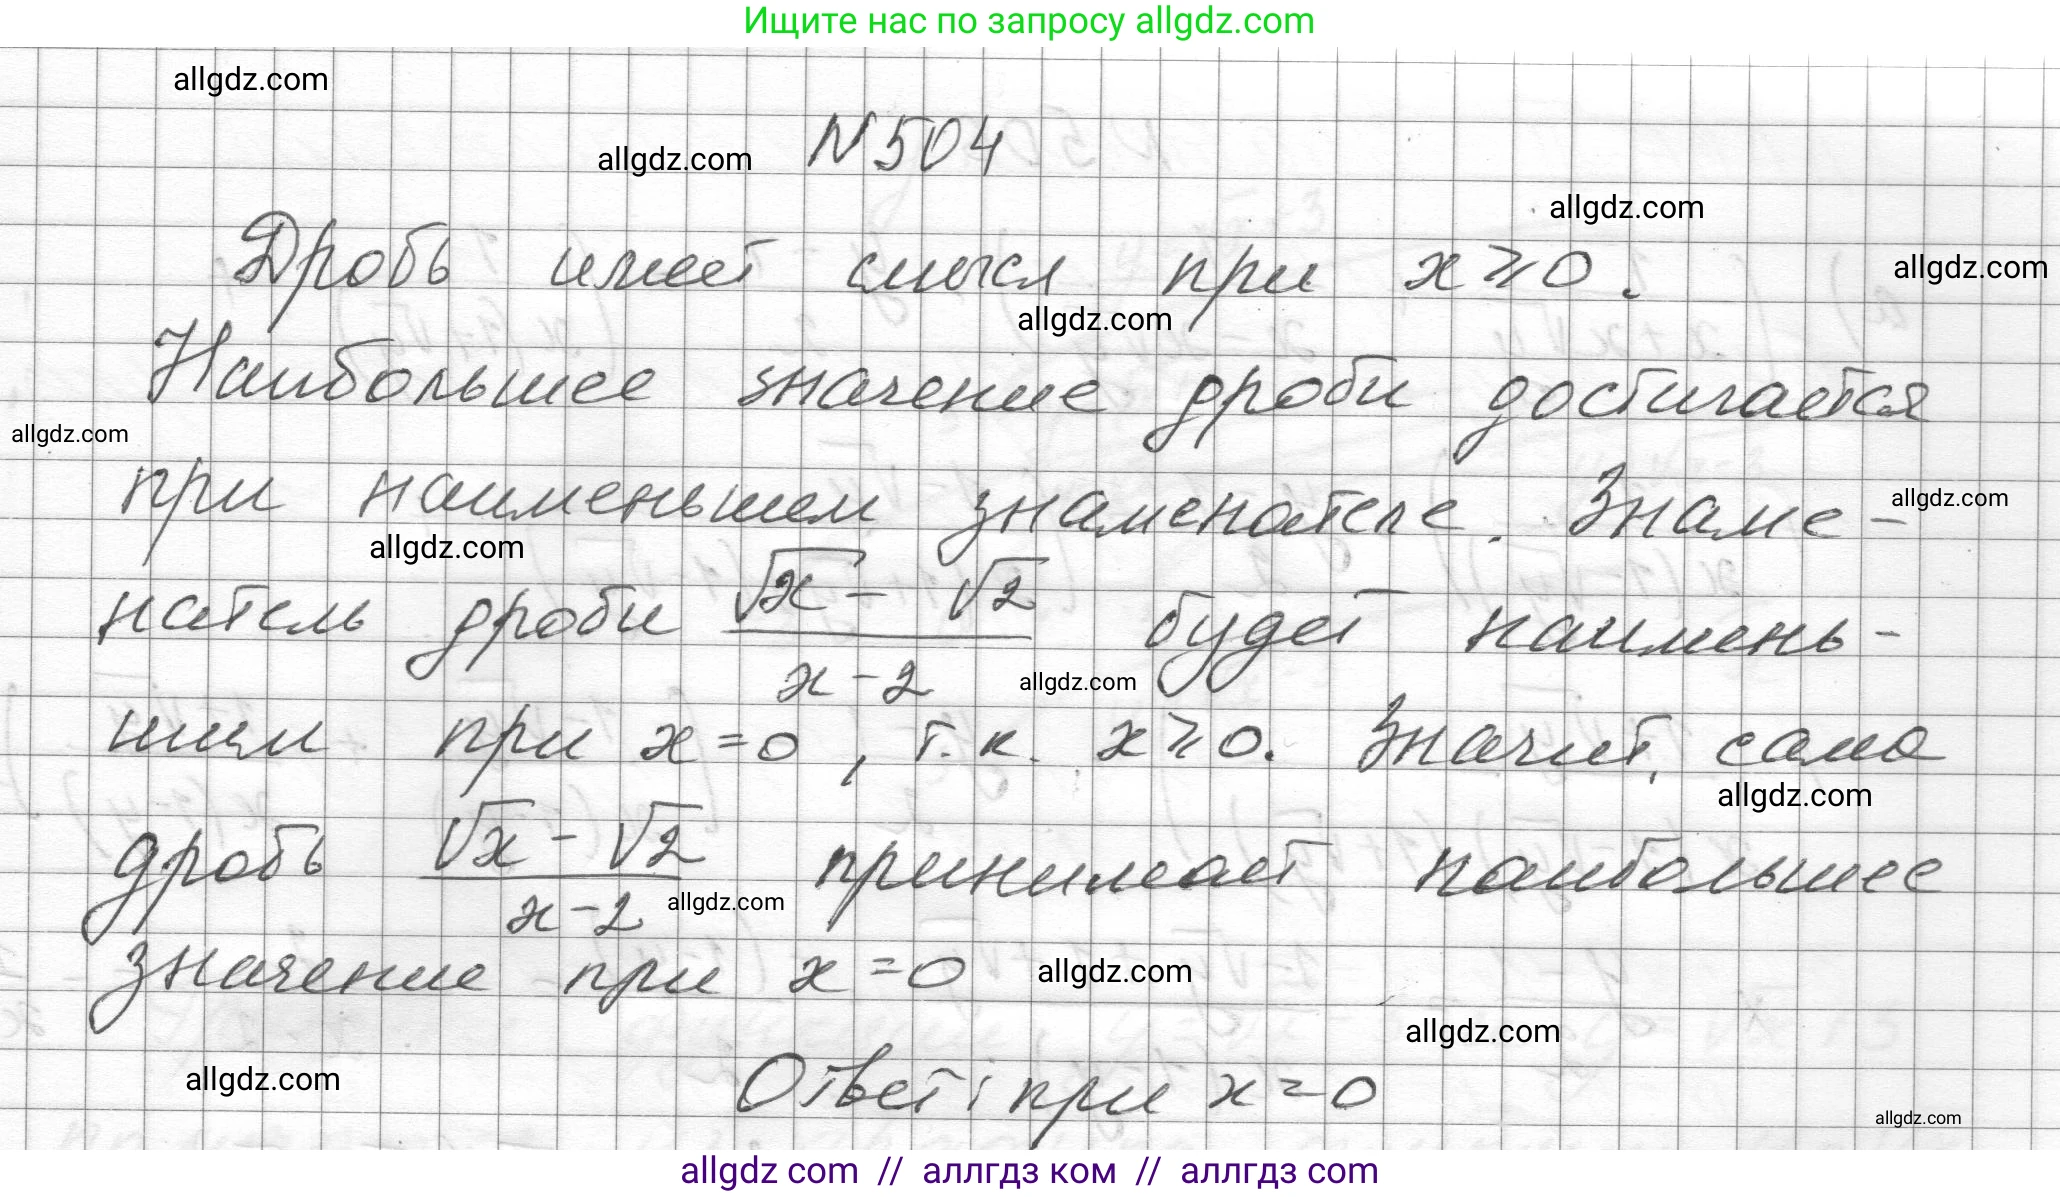 Ищите нас по запросу allgdz.com
allgdz.com
N504
allgdz.com
allgdz.com
Дробь имеет смысл при x ⩾ 0.
allgdz.com
allgdz.com
Наибольшее значение дроби достигается
allgdz.com
при наименьшем знаменателе. Знаме-
allgdz.com
allgdz.com
натель дроби (√x - √2)/(x - 2) будет наимень-
allgdz.com
шим при x = 0, т.к. x ⩾ 0. Значит, сама
allgdz.com
дробь (√x - √2)/(x - 2) принимает наибольшее
allgdz.com
значение при x = 0
allgdz.com
allgdz.com
allgdz.com
Ответ: при x = 0
allgdz.com
allgdz com // аллгдз ком // аллгдз com